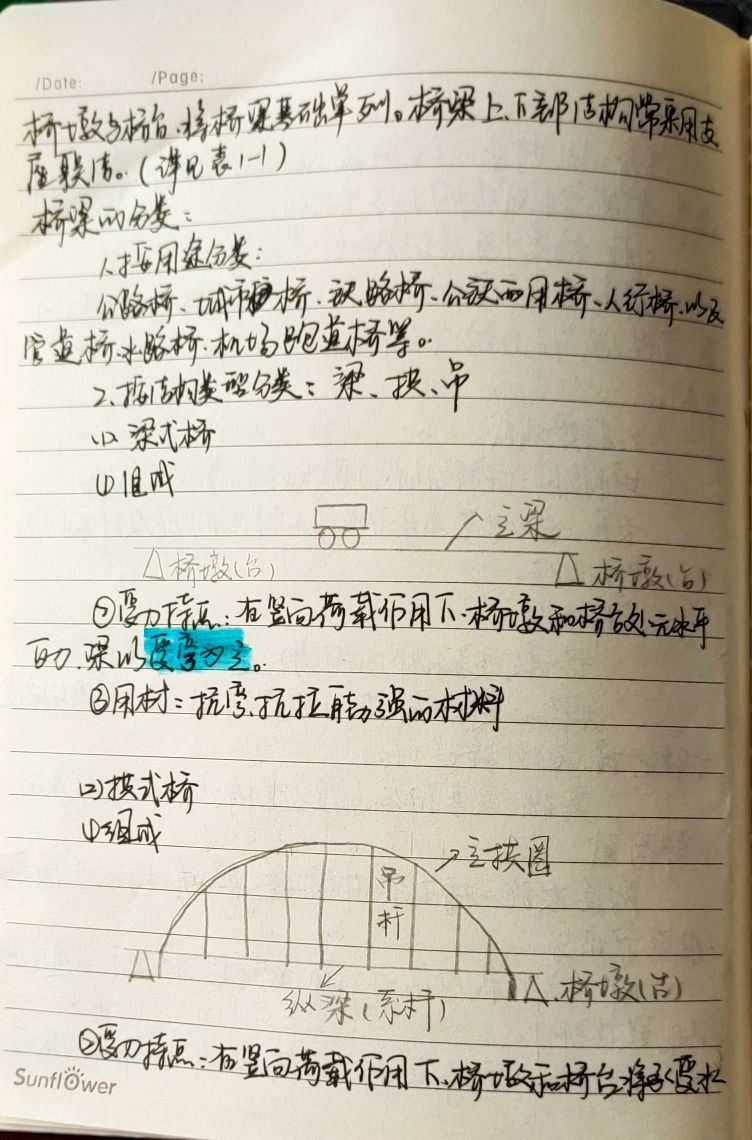 /Date: /Page:
桥墩与桥台、将桥梁基础单列。桥梁上、下部结构常采用支
座联结。(详见表1-1)
桥梁的分类:
1、按用途分类:
公路桥、城市桥、铁路桥、公铁两用桥、人行桥、以及
管道桥、水路桥、机场跑道桥等。
2、按结构类型分类:梁、拱、吊
(1)梁式桥
①组成
主梁
桥墩(台) 桥墩(台)
②受力特点:在竖向荷载作用下、桥墩和桥台处无水平
力、梁以受弯为主。
③用材:抗弯、抗拉能力强的材料
(2)拱式桥
①组成
主拱圈
吊
杆
纵梁(系杆) 桥墩(台)
②受力特点:在竖向荷载作用下、桥墩和桥台将承受水
Sunflower